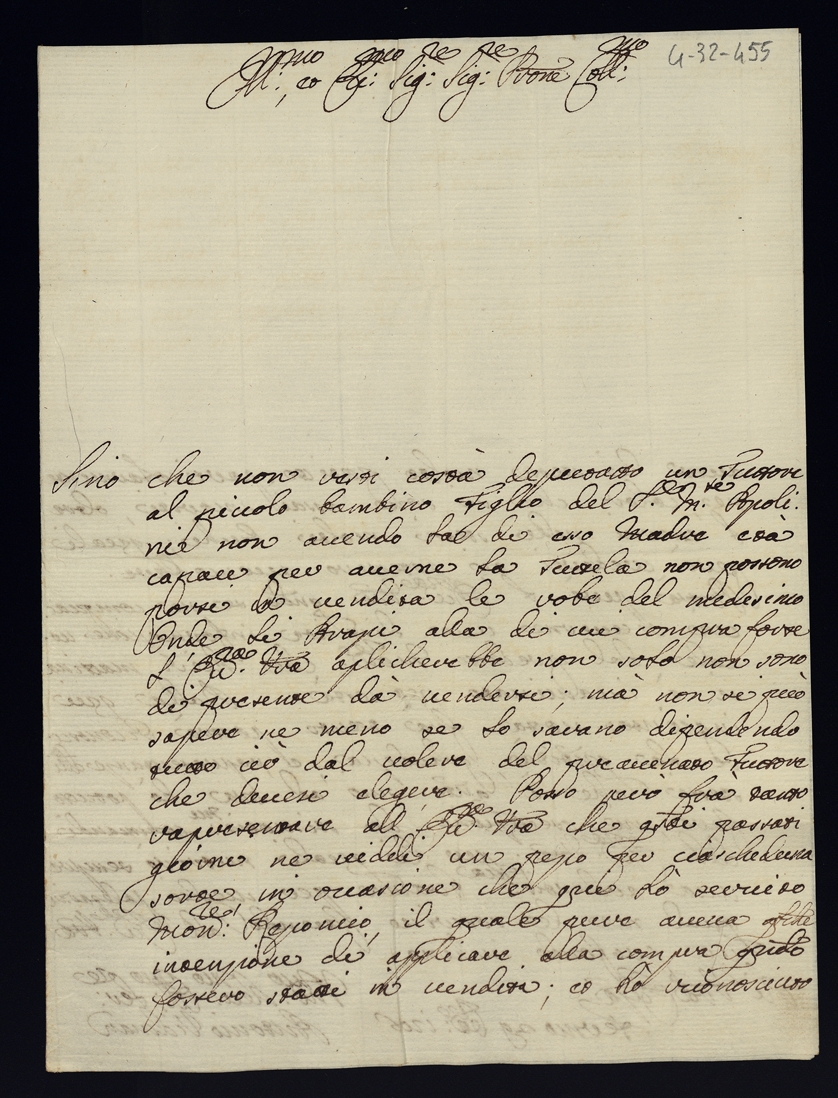 4-32-455
Ill:mo, eo Ecc:mo Sig:re Sig:re Prone Coll:mo
Sino che non resti costà deputato un Tuttore
al piccolo bambino Figlio del S.r M.se Popoli:
nié non avendo la di esso Madre età
capace per averne la Tuttela non possono
porsi in vendita le robe del medesimo
Onde li Arazzi alla di cui compra forse
l'Ecc:za Vra aplicherebbe non solo non sono
di presente dà vendersi; mà non si può
sapere ne meno se lo sarano dipendendo
tutto ciò dal volere del preacenato Tuttore
che devesi elegere. Posso però frà tanto
rapresentare all'Ecc:za Vra che gsti passati
giorni ne viddi un pezo per ciascheduna
sorte in ocasione che quì hò servito
Mon:re, il quale pure aveva
intenzione di applicare alla compra qndo
fossero stati in vendita; eo hò riconosciuto